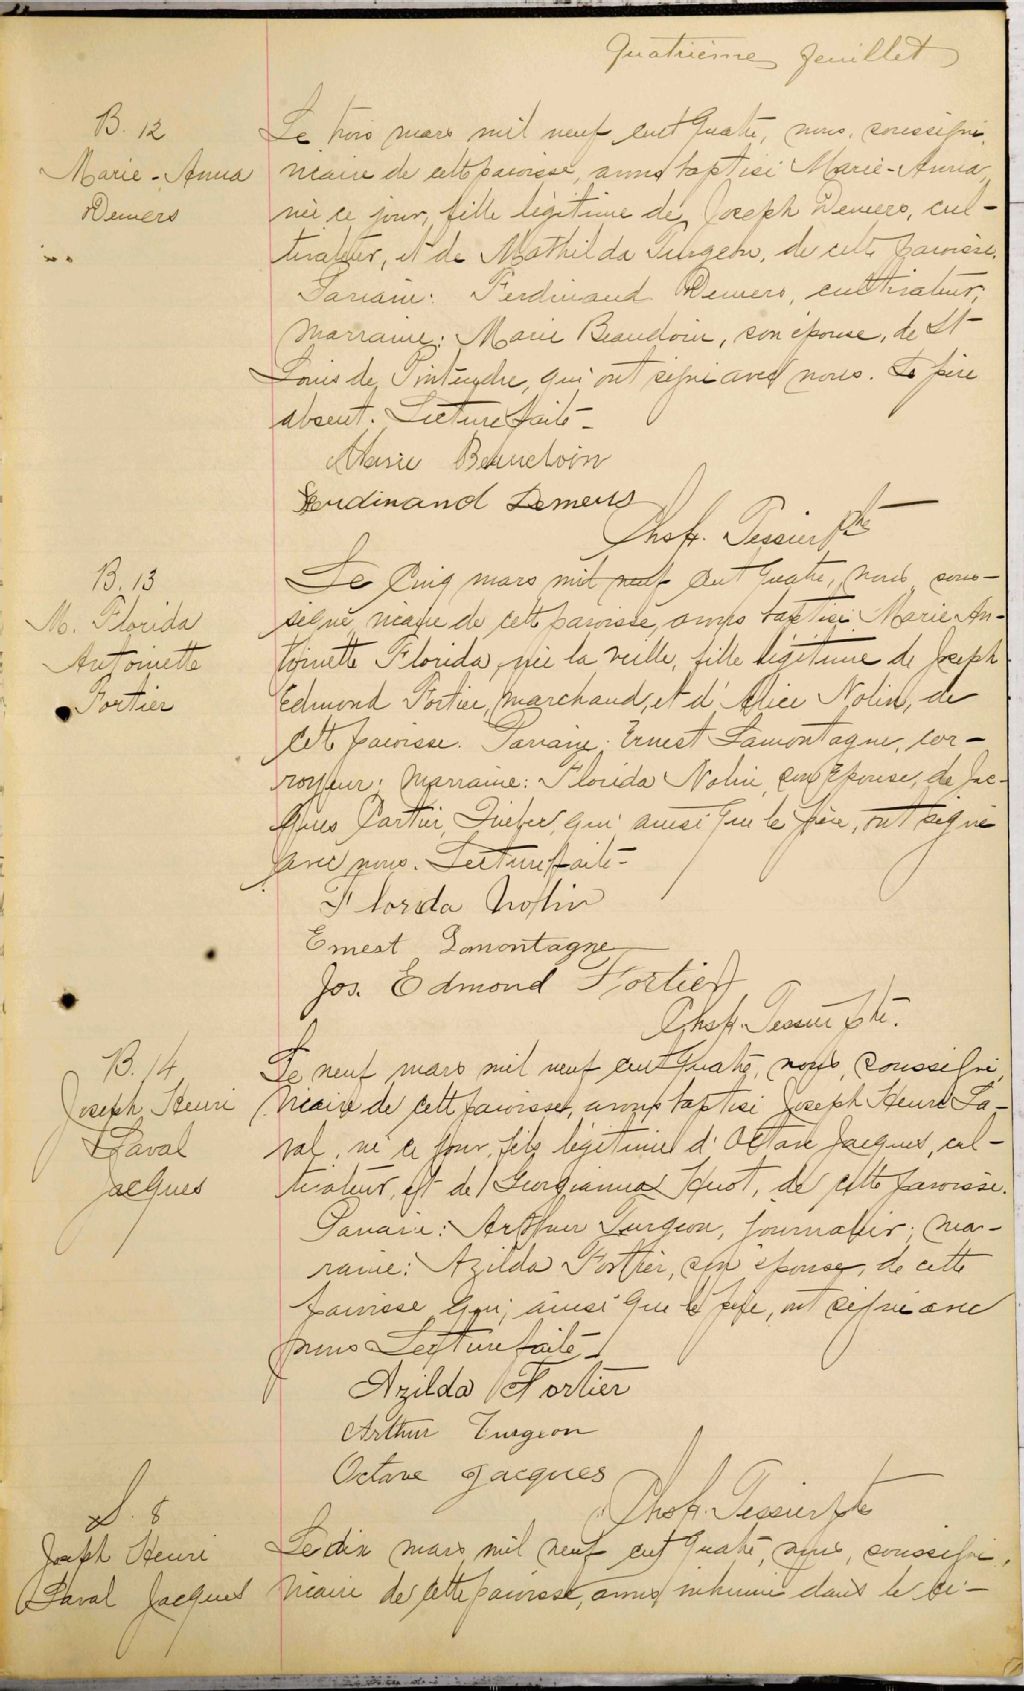 Quatrième feuillet
B. 12
Marie-Anna
Demers
Le trois mars mil neuf cent quatre, nous, soussigné,
vicaire de cette paroisse, avons baptisé Marie-Anna,
née ce jour, fille légitime de Joseph Demers, cul-
tivateur, et de Mathilda Turgeon, de cette paroisse.
Parrain: Ferdinand Demers, cultivateur,
marraine: Marie Beaudoin, son épouse, de St-
Louis de Pintendre, qui ont signé avec nous. Le père
absent. Lecture faite-
Marie Beaudoin
Ferdinand Demers
Chs H. Tessier Ptre
B. 13
M. Florida
Antoinette
Fortier
Le Cinq mars mil neuf cent quatre, nous, sous-
signé, vicaire de cette paroisse, avons baptisé Marie An-
toinette Florida, née la veille, fille légitime de Joseph
Edmond Fortier, marchand, et d'Alice Nolin, de
cette paroisse. Parrain: Ernest Lamontagne, cor-
royeur; marraine: Florida Nolin, son Epouse, de Jac-
ques Cartier, Québec, qui ainsi que le père, ont signé
avec nous. Lecture faite-
Florida Nolin
Ernest Lamontagne
Jos. Edmond Fortier
Chs H. Tessier ptre.
B. 14
Joseph Henri
Laval
Jacques
Le neuf mars mil neuf cent quatre, nous, soussigné,
vicaire de cette paroisse, avons baptisé Joseph Henri La-
val, né ce jour, fils légitime d'Octave Jacques, cul-
tivateur, et de Georgianna Huot, de cette paroisse.
Parrain: Arthur Turgeon, journalier; mar-
raine: Azilda Fortier, son épouse, de cette
paroisse, qui, ainsi que le père, ont signé avec
nous Lecture faite-
Azilda Fortier
Arthur Turgeon
Octave Jacques
Chs H. Tessier ptre
S. 8
Joseph Henri
Laval Jacques
Le dix mars mil neuf cent quatre, nous, soussigné,
vicaire de cette paroisse, avons inhumé dans le ci-